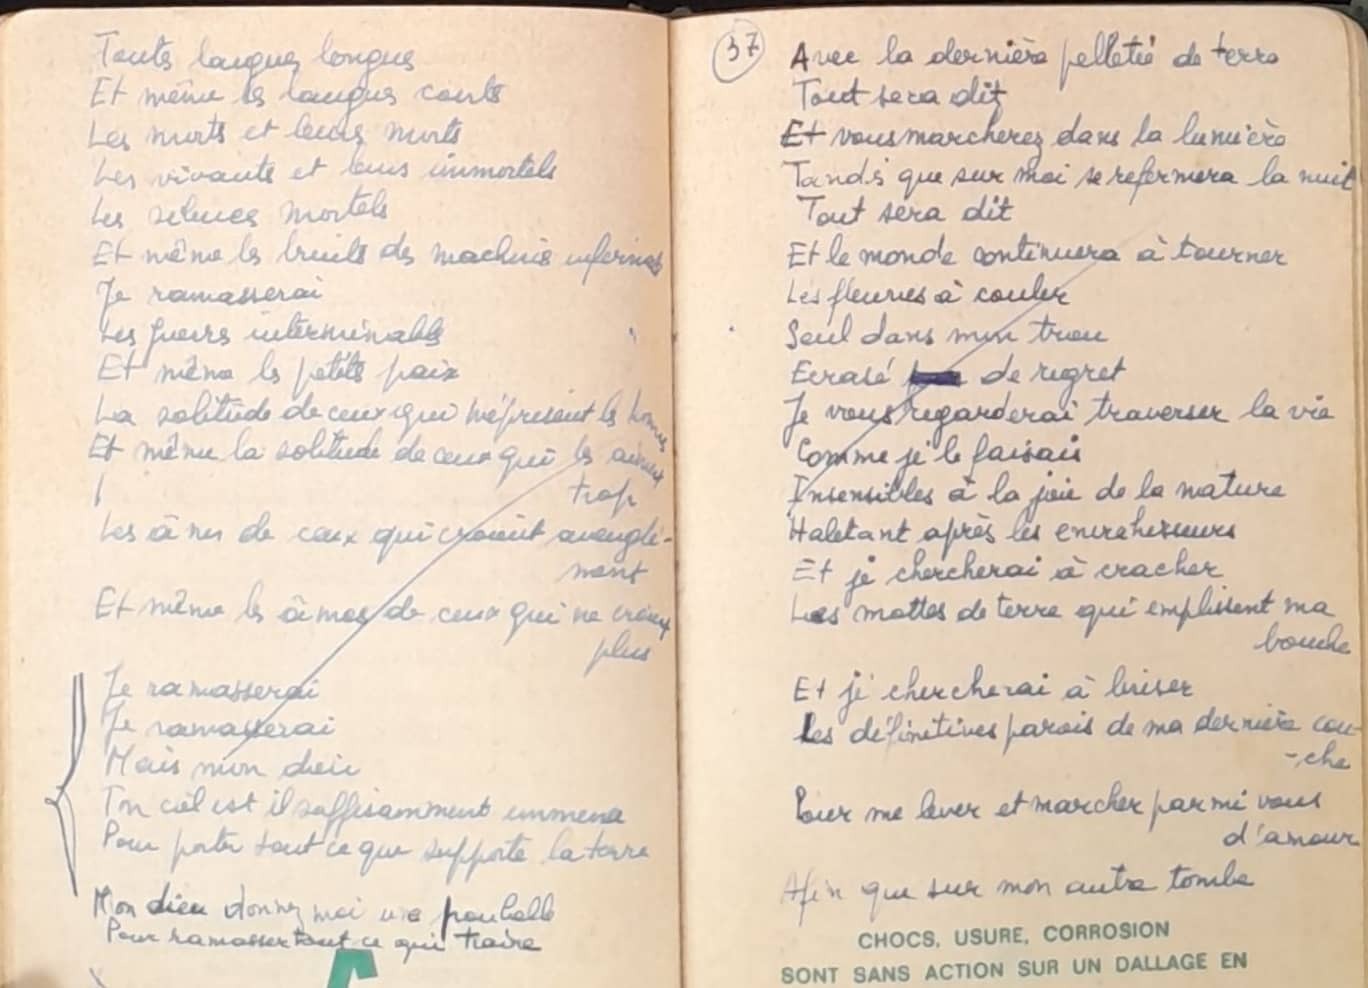 Toutes langues longues
Et même les langues courtes
Les morts et leurs morts
Les vivants et leurs immortels
Les silences mortels
Et même les bruits des machines infernales
Je ramasserai
Les guerres interminables
Et même les petites paix
La solitude de ceux qui méprisent les hommes
Et même la solitude de ceux qui les aiment
trop
Les âmes de ceux qui croient aveuglé-
ment
Et même les âmes de ceux qui ne croient
plus
Je ramasserai
Je ramasserai
Mais mon dieu
Ton ciel est il suffisamment immense
Pour porter tout ce que supporte la terre
Mon dieu donnez moi une poubelle
Pour ramasser tout ce qui traine
37
Avec la dernière pelletée de terre
Tout sera dit
Et vous marcherez dans la lumière
Tandis que sur moi se refermera la nuit
Tout sera dit
Et le monde continuera à tourner
Les fleuves à couler
Seul dans mon trou
Ecrasé de regret
Je vous regarderai traverser la vie
Comme je le faisais
Insensibles à la joie de la nature
Haletant après les envahisseurs
Et je chercherai à cracher
Les mottes de terre qui emplissent ma
bouche
Et je chercherai à briser
Les définitives parois de ma dernière cou-
-che
Pour me lever et marcher parmi vous
d'amour
Afin que sur mon autre tombe
CHOCS, USURE, CORROSION
SONT SANS ACTION SUR UN DALLAGE EN